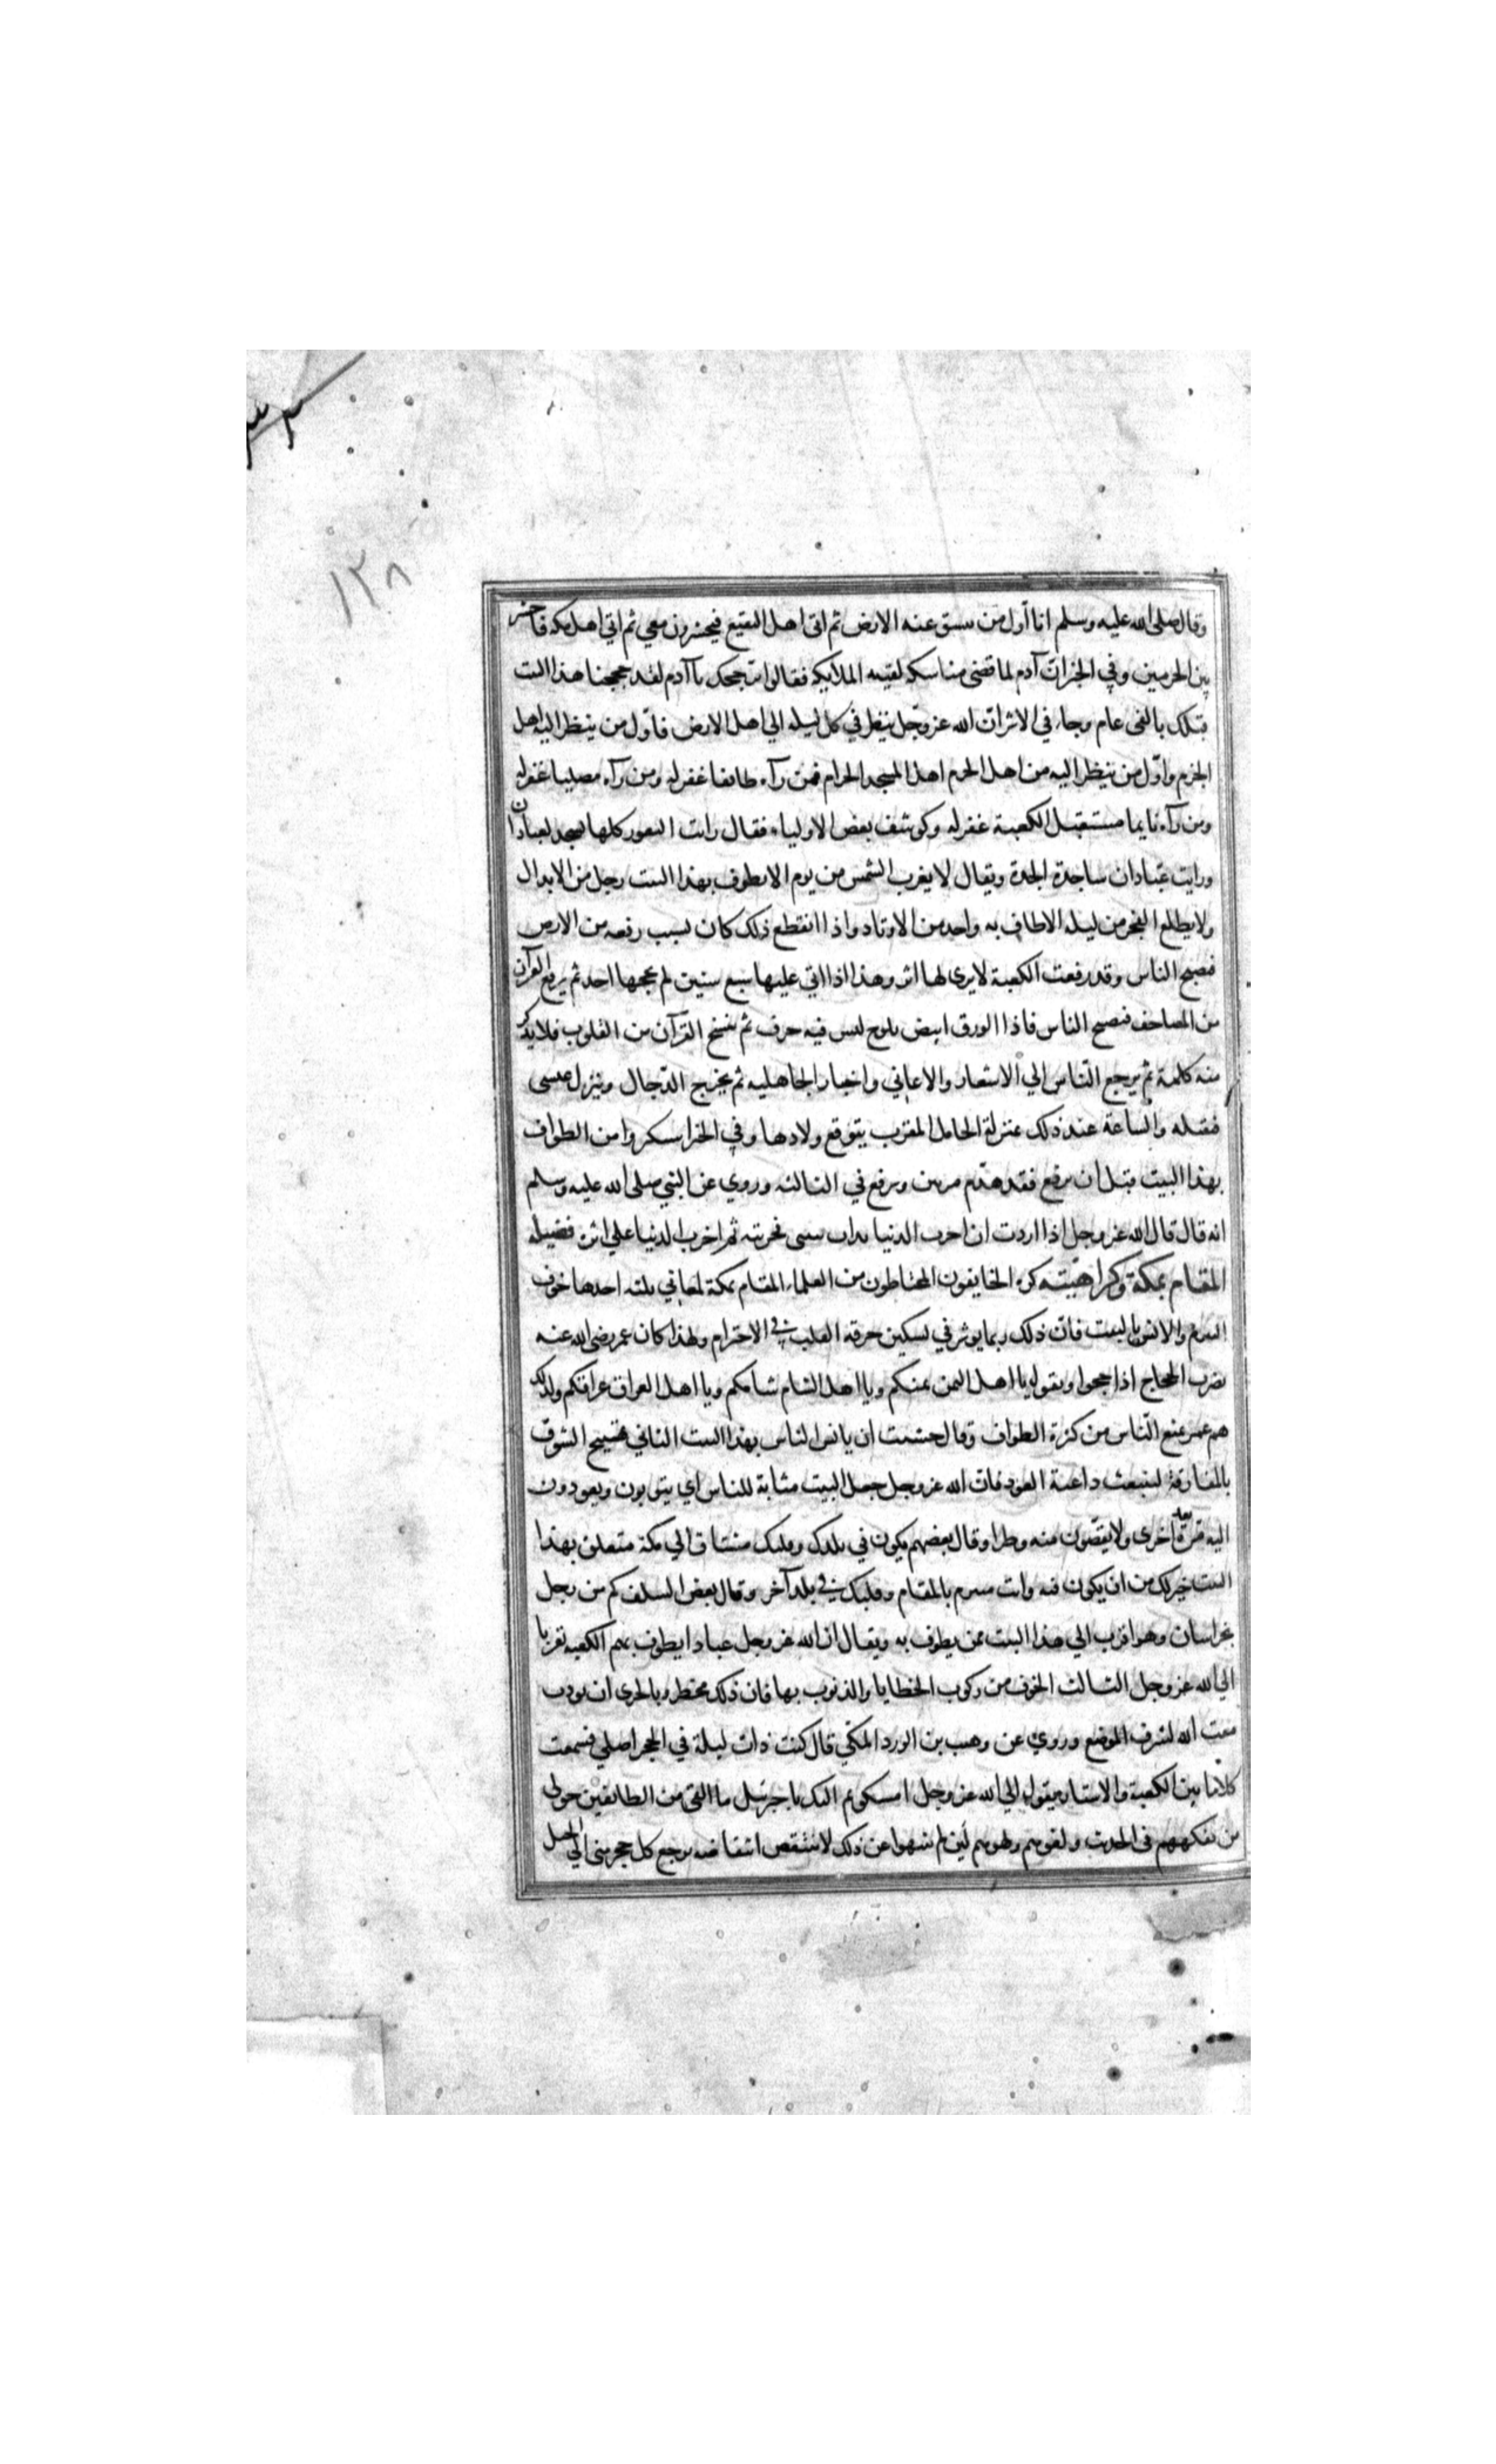 ١٣٨
وقال صلى الله عليه وسلم انا اول من ينشق عنه الارض ثم اتى اهل البقيع فيحشرون معي ثم اتي اهل مكه فاحشر
بين الحرمين وفي الخبر ان آدم لما قضى مناسكه لقيته الملايكه فقالوا بر حجك يا آدم لقد حججنا هذا البيت
قبلك بالفى عام وجاء في الاثر ان الله عز وجل ينظر في كل ليله الي اهل الارض فاول من ينظر اليه اهل
الحرم واول من ينظر اليه من اهل الحرم اهل المسجد الحرام فمن رآه طائفا غفر له ومن رآه مصليا غفر له
ومن رآه نايما مستقبل الكعبة غفر له وكوشف بعض الاولياء فقال رايت الثغور كلها تسجد لعبادان
ورايت عبادان ساجدة لجدة ويقال لا يغرب الشمس من يوم الا يطوف بهذا البيت رجل من الابدال
ولا يطلع الفجر من ليله الا طاف به واحد من الاوتاد واذا انقطع ذلك كان لسبب رفعه من الارض
فيصبح الناس وقد رفعت الكعبة لا يرى لها اثر وهذا اذا اتي عليها سبع سنين لم يحجها احد ثم يرفع القرآن
من المصاحف فيصبح الناس فاذا الورق ابيض يلوح ليس فيه حرف ثم ينسخ القرآن من القلوب فلا يذكر
منه كلمة ثم يرجع الناس الي الاشعار والاغاني واخبار الجاهليه ثم يخرج الدجال وينزل عيسى
فيقتله والساعة عند ذلك بمنزلة الحامل المقرب يتوقع ولادها وفي الخبر استكثروا من الطواف
بهذا البيت قبل ان يرفع فقد هدم مرتين ويرفع في الثالثه وروي عن النبي صلى الله عليه وسلم
انه قال قال الله عز وجل اذا اردت ان اخرب الدنيا بدات ببيتى فخربته ثم اخرب الدنيا علي اثره فضيله
المقام بمكة وكراهيته كره الخايفون المحتاطون من العلماء المقام بمكة لمعاني ثلثه احدها خوف
التبرم والانس بالبيت فان ذلك ربما يوثر في تسكين حرقه القلب في الاحترام ولهذا كان عمر رضى الله عنه
يضرب الحجاج اذا حجوا ويقول يا اهل اليمن يمنكم ويا اهل الشام شامكم ويا اهل العراق عراقكم ولذلك
هم عمر بمنع الناس من كثرة الطواف وقال خشيت ان يانس الناس بهذا البيت الثاني تهييج الشوق
بالمفارقة لينبعث داعية العود فان الله عز وجل جعل البيت مثابة للناس اي يثوبون ويعودون
اليه مرة بعد اخرى ولا يقضون منه وطرا وقال بعضهم يكون في بلدك وقلبك مشتاق الي مكة متعلق بهذا
البيت خير لك من ان يكون فيه وانت متبرم بالمقام وقلبك في بلد آخر وقال بعض السلف كم من رجل
بخراسان وهو اقرب الي هذا البيت ممن يطوف به ويقال ان لله عز وجل عبادا يطوف بهم الكعبه تقربا
الي الله عز وجل الثالث الخوف من ركوب الخطايا والذنوب بها فان ذلك مخطر وبالحرى ان يورث
مقت الله لشرف الموضع وروي عن وهب بن الورد المكي قال كنت ذات ليلة في الحجر اصلي فسمعت
كلاما بين الكعبة والاستار يقول الي الله عز وجل اشكو ثم اليك يا جبرئيل ما القى من الطائفين حولى
من تفكههم فى الحديث ولغوهم ولهوهم لئن لم ينتهوا عن ذلك لانتقضن انتفاضه يرجع كل حجر منى الي الجبل